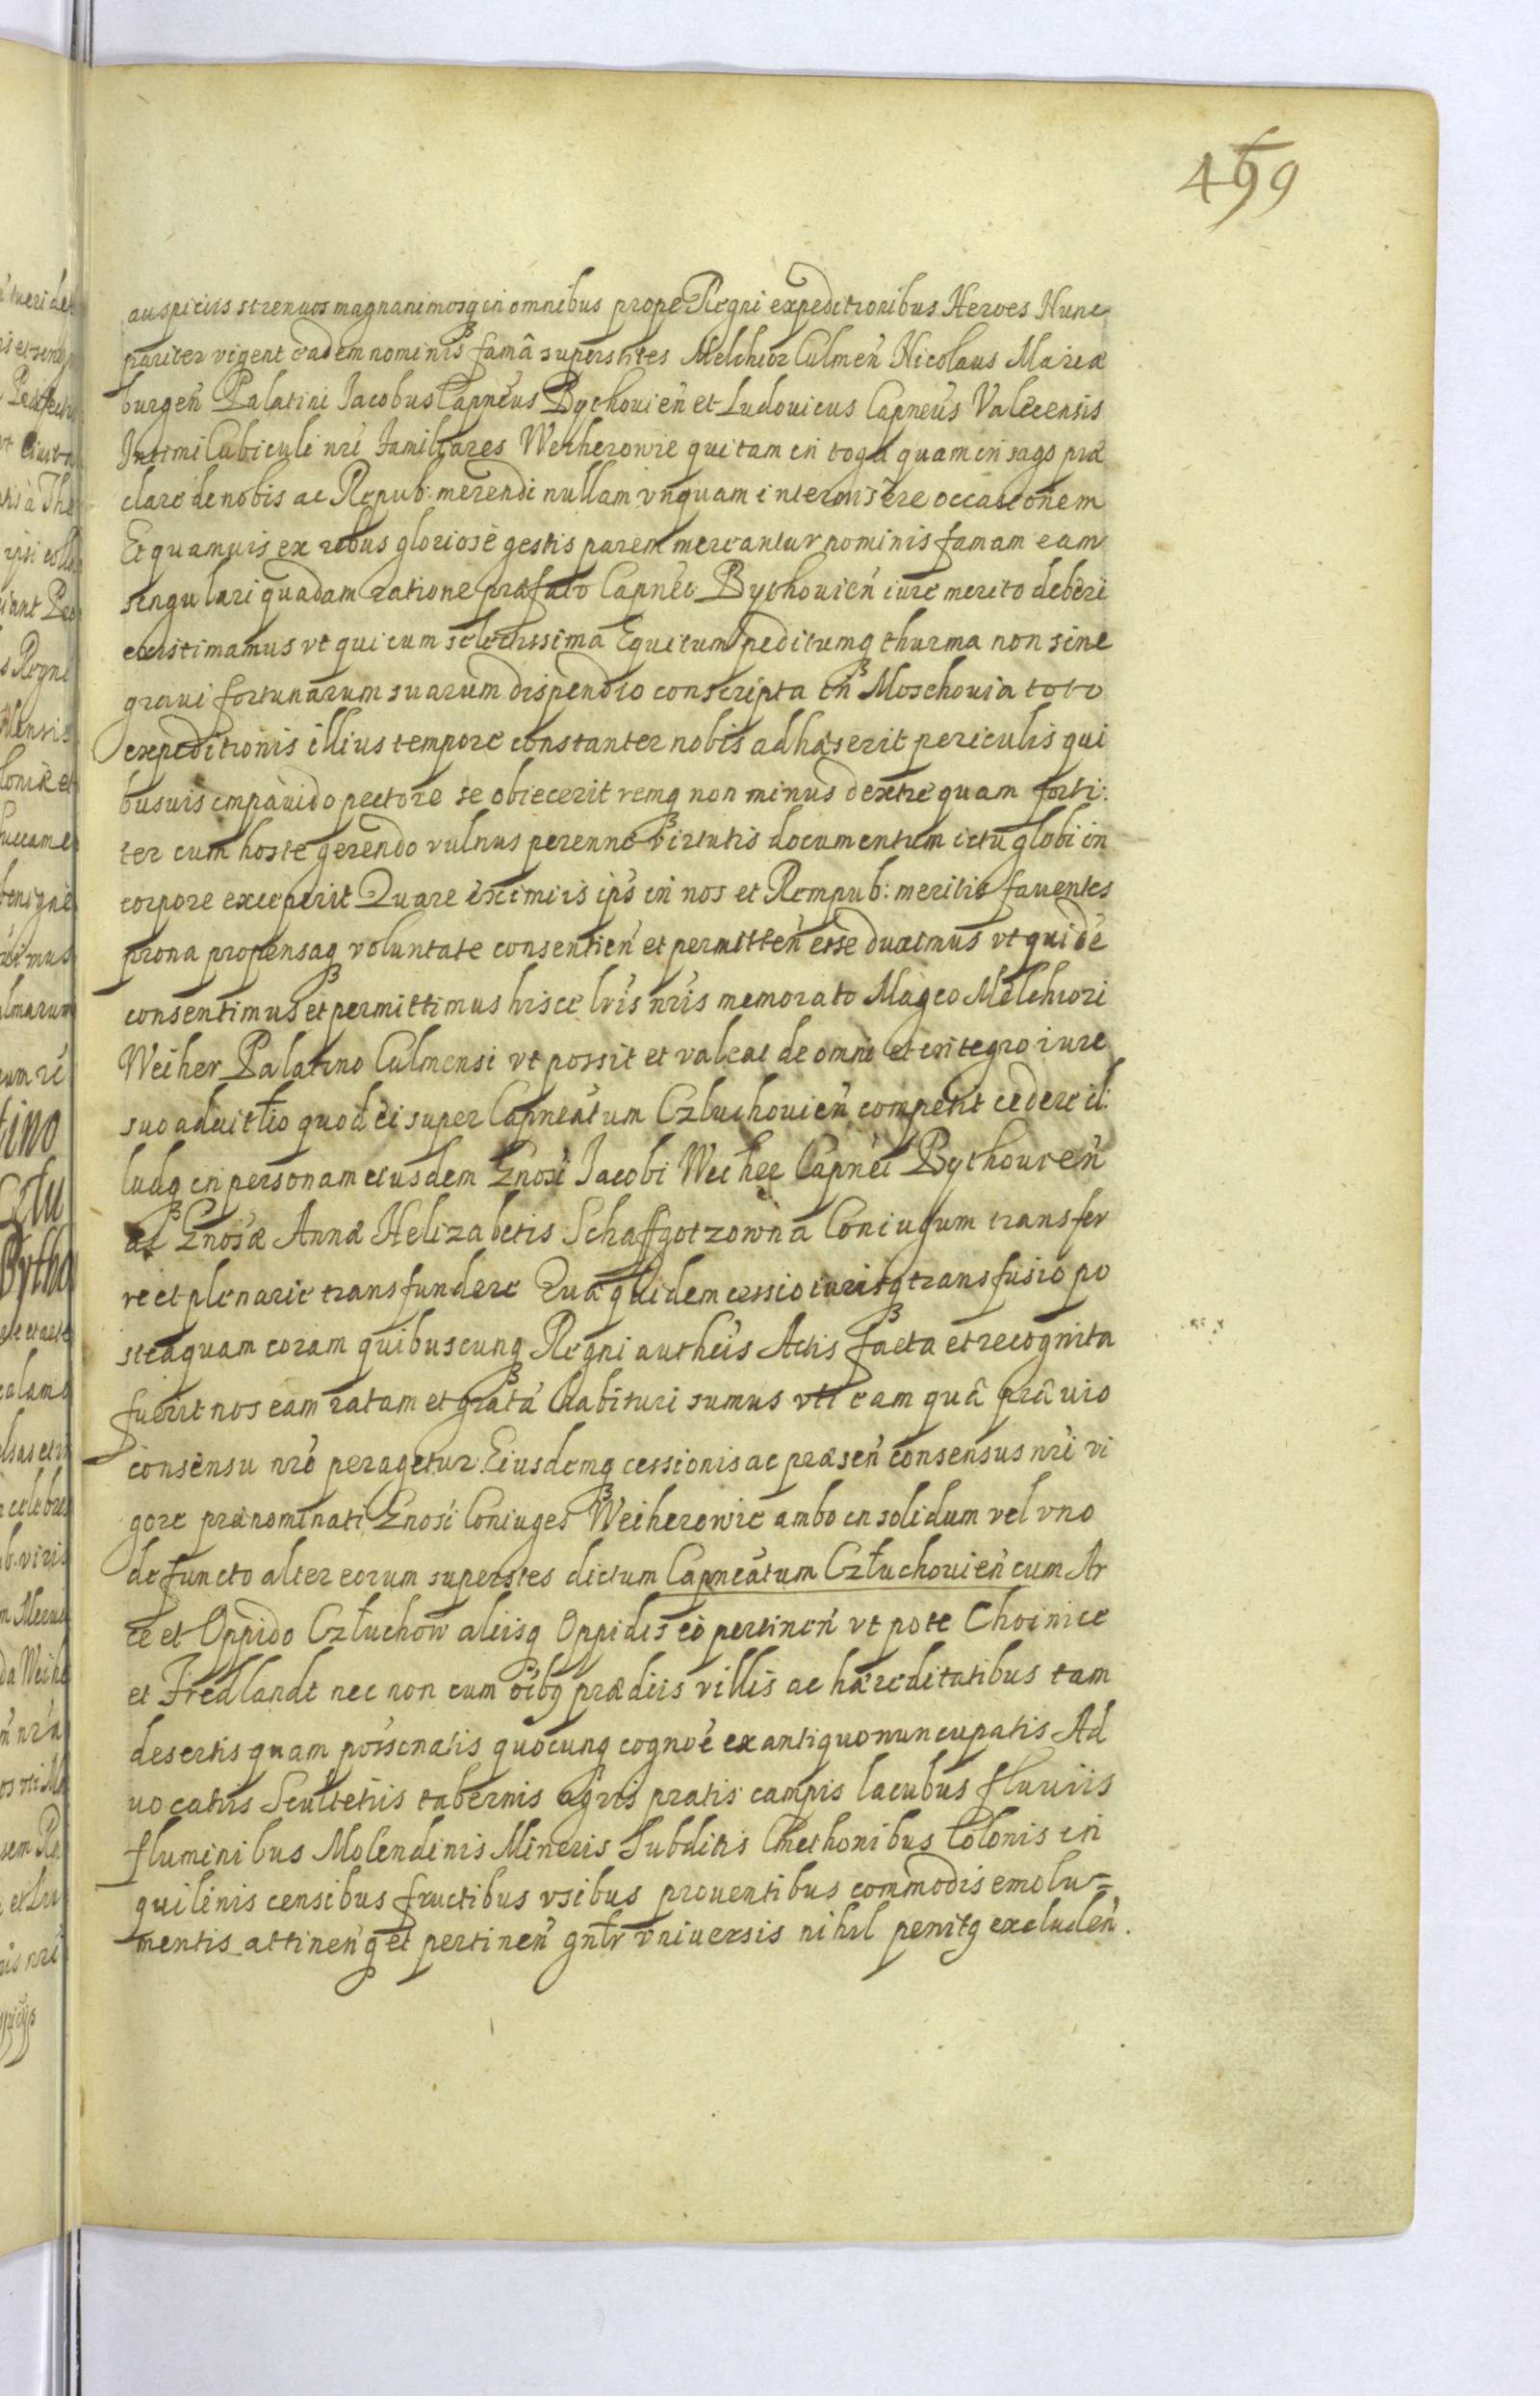 459
auspiciis strenuos magnanimosq in omnibus prope Regni expeditionibus Heroes Nunc
pariter vigent eadem nominis famâ superstites Melchior Culmen̄ Nicolaus Mariæ
burgen̄ Palatini Jacobus Capneus Bythovien̄ et Ludovicus Capneus Valcensis
Intimi Cubiculi nr̄i familiares Weiherowie qui tam in toga quam in sago præ
clare de nobis ac Repub: merendi nullam vnquam intermisere occasionem
Et quamuis ex rebus gloriose gestis parem mereantur nominis famam eam
singulari quadam ratione præfato Capneo Bythovien̄ iure merito deberi
existimamus vt qui cum selectissima Equitum peditumq thurma non sine
graui fortunarum suarum dispendio conscripta in Moschouia toto
expeditionis illius tempore constanter nobis adhæserit periculis qui
busuis impauido pectore se obiecerit remq non minus dextre quam forti:
ter cum hoste gerendo vulnus perenne virtutis documentum ictu globi in
corpore exceperit Quare eximiis ip̄s in nos et Rempub: meritis fauentes
prona propensaq voluntate consentien̄ et permitten̄ esse duximus vt quidē
consentimus et permittimus hisce lr̄is nr̄is memorato Mag̅co Melchiori
Weiher Palatino Culmensi vt possit et valeat de omni et integro iure
suo aduitl̄io quod ei super Capneatum Człuchovien̄ competit cedere il
ludq in personam eiusdem Gnosi Jacobi Weiher Capnei Bythovien̄
ac Gnosæ Annæ Helizabetis Schaffgotzowna Coniugum transfer
re et plenarie transfundere Quæ quidem cessio iurisq transfusio po
steaquam coram quibuscunq Regni authēis Actis facta et recognita
fuerit nos eam ratam et gratā habituri sumus vti eam quâ præuio
consensu nr̄o peragetur. Eiusdemq cessionis ac præsen̄ consensus nr̄i vi
gore prænominati Gnosi Coniuges Weiherowie ambo in solidum vel vno
defuncto alter eorum superstes dictum Capneatum Człuchovien̄ cum Ar
ce et Oppido Człuchow aliisq Oppidis eo pertinen̄ vt pote Choinice
et Fredlandt nec non cum oībq prædiis villis ac hæreditatibus tam
desertis quam possonatis quocunq cogno̅e ex antiquo nuncupatis Ad
uocatiis Scultetiis tabernis agris pratis campis lacubus fluuiis
fluminibus Molendinis Mineris Subditis Cmethonibus Colonis in
quilinis censibus fructibus vsibus prouentibus commodis emolu=
mentis attinen̄q et pertinen̄ gn̄lr vniuersis nihil penitq excluden̄.